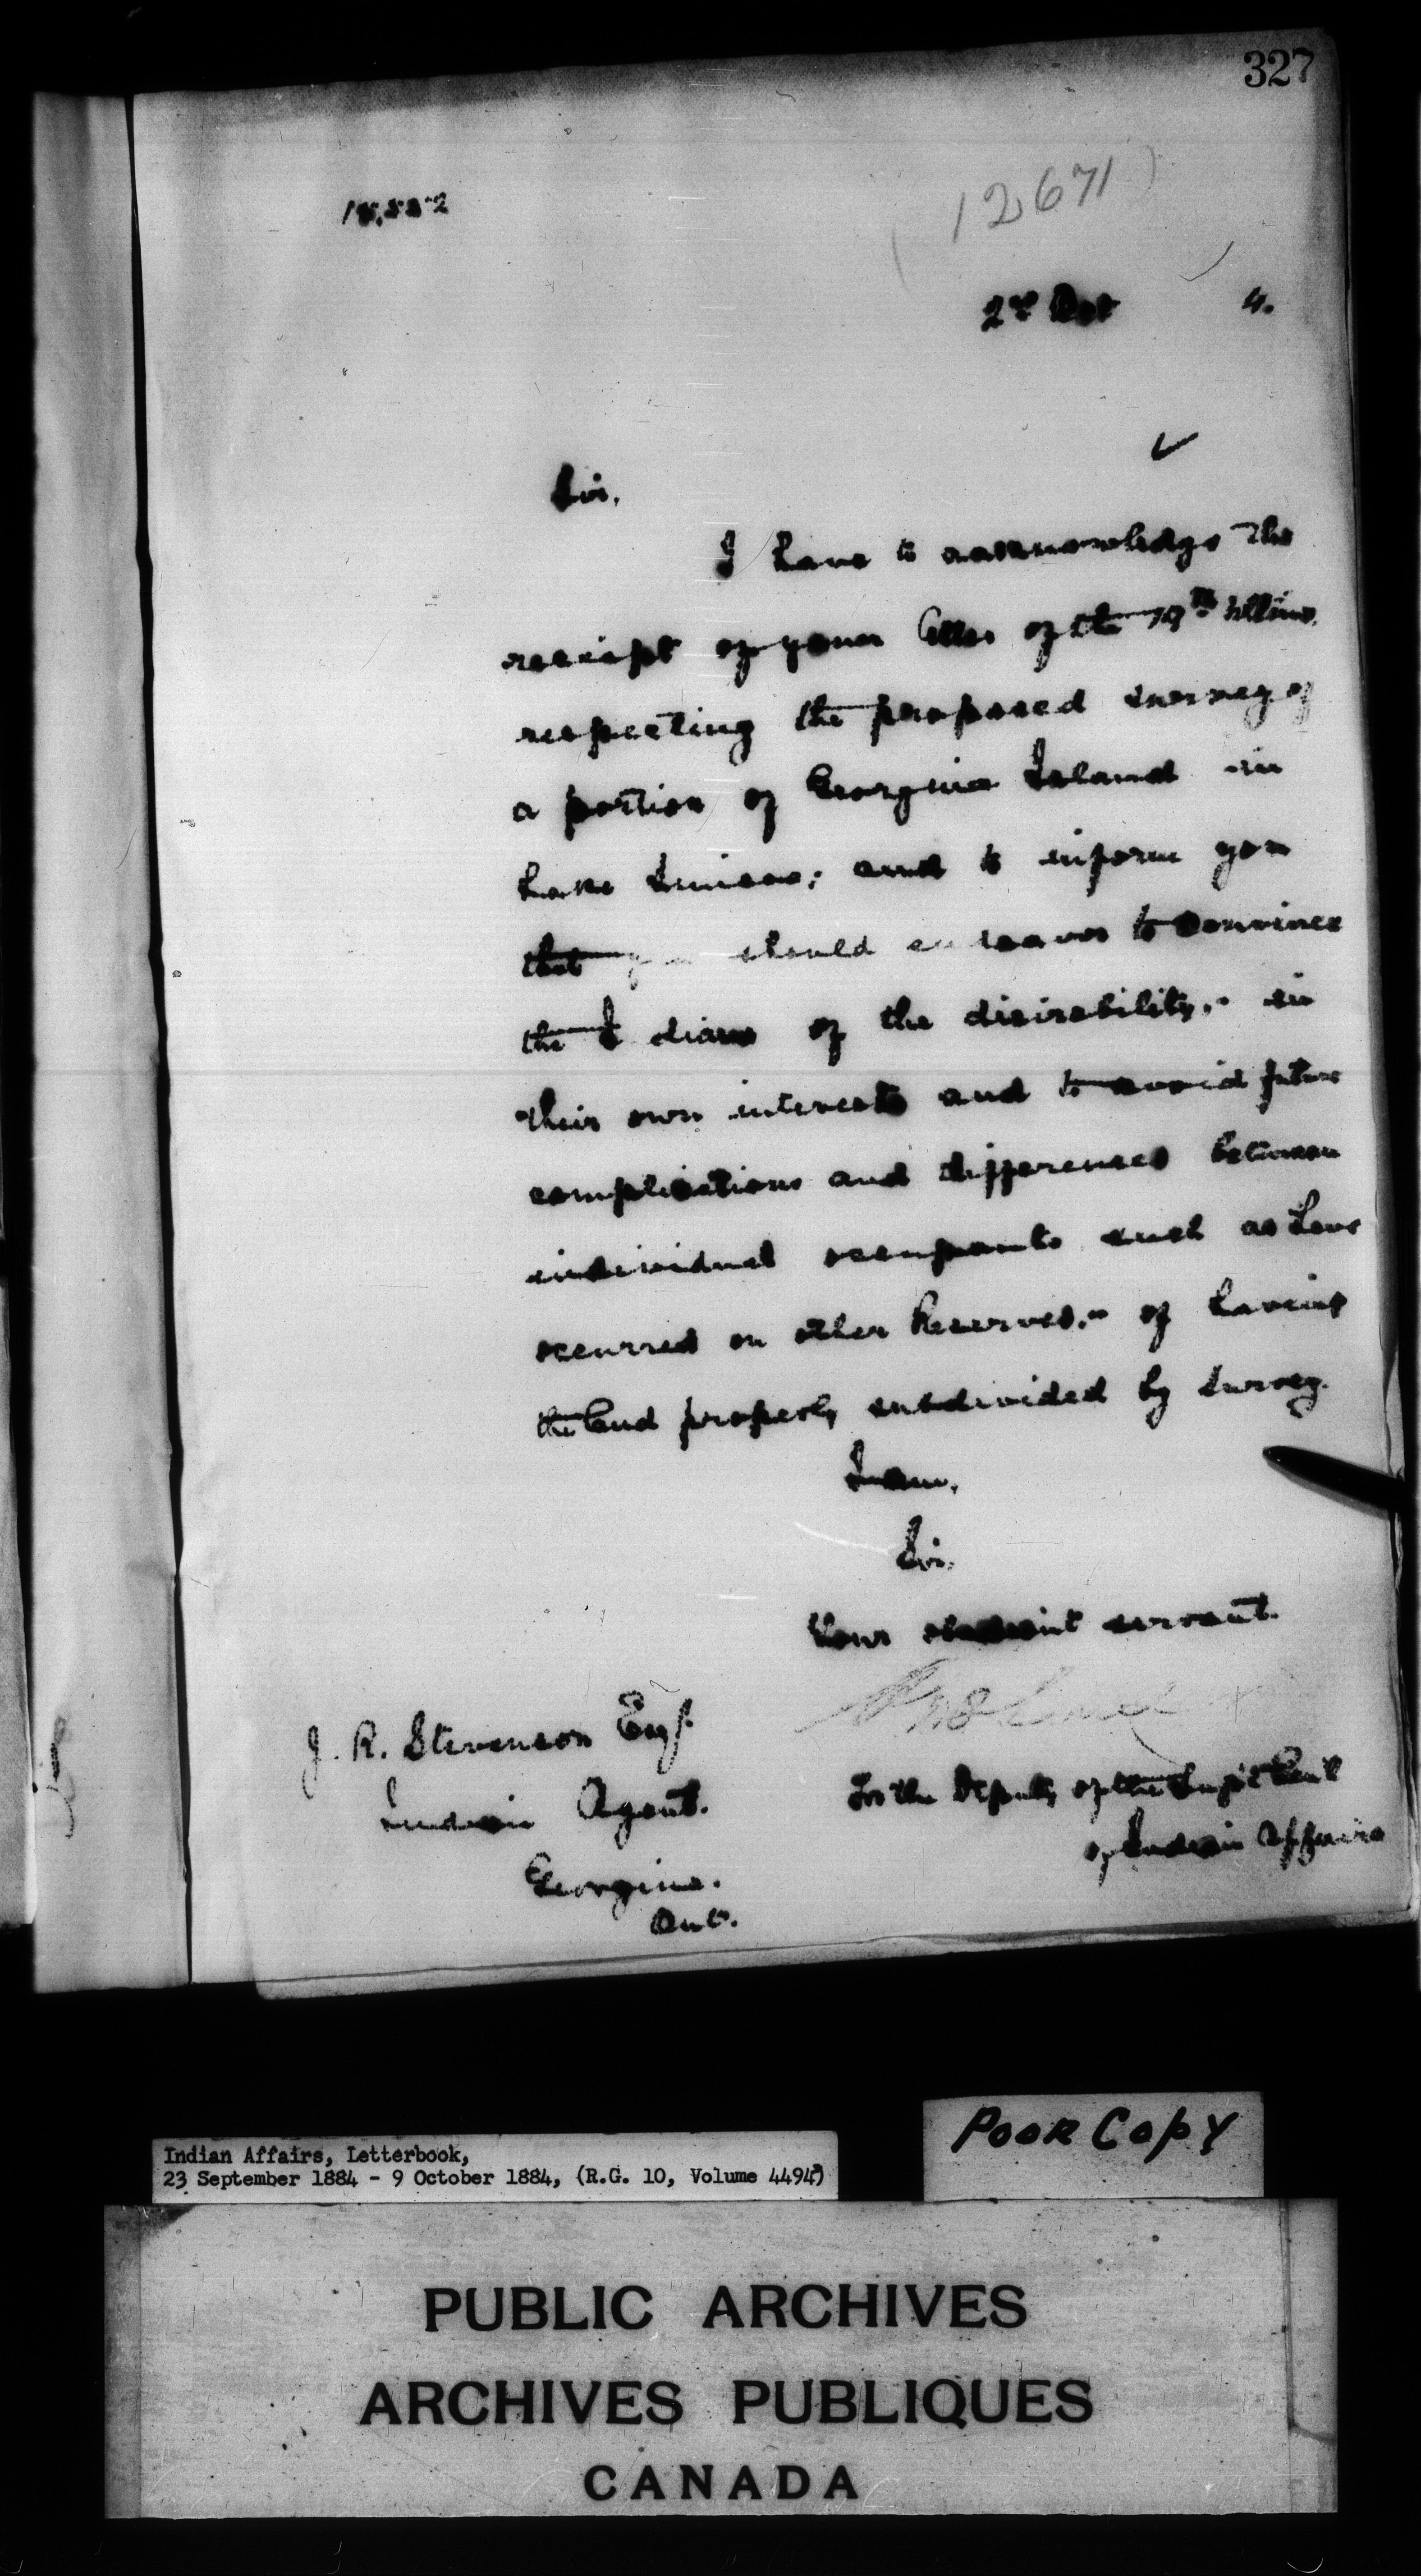 327
12671
2nd Oct 4.
Sir,
I have to acknowledge the
receipt of your letter of the 18th Ultimo,
respecting the proposed survey of
a portion of Georgina Island in
Lake Simcoe; and to inform you
that you should endeavor to convince
the Indians of the desirability,- in
their own interests and to avoid future
complications and differences between
individual occupants such as have
occurred on other Reserves,- of having
the land properly subdivided by survey.
I am,
Sir,
Your obedient servant.
J. R. Stevenson Esq.
Indian Agent.
Georgina.
Ont.
For the Deputy of the Supt Genl
of Indian Affairs
Indian Affairs, Letterbook,
23 September 1884 - 9 October 1884, (R.G. 10, Volume 4494)
POOR COPY
PUBLIC ARCHIVES
ARCHIVES PUBLIQUES
CANADA